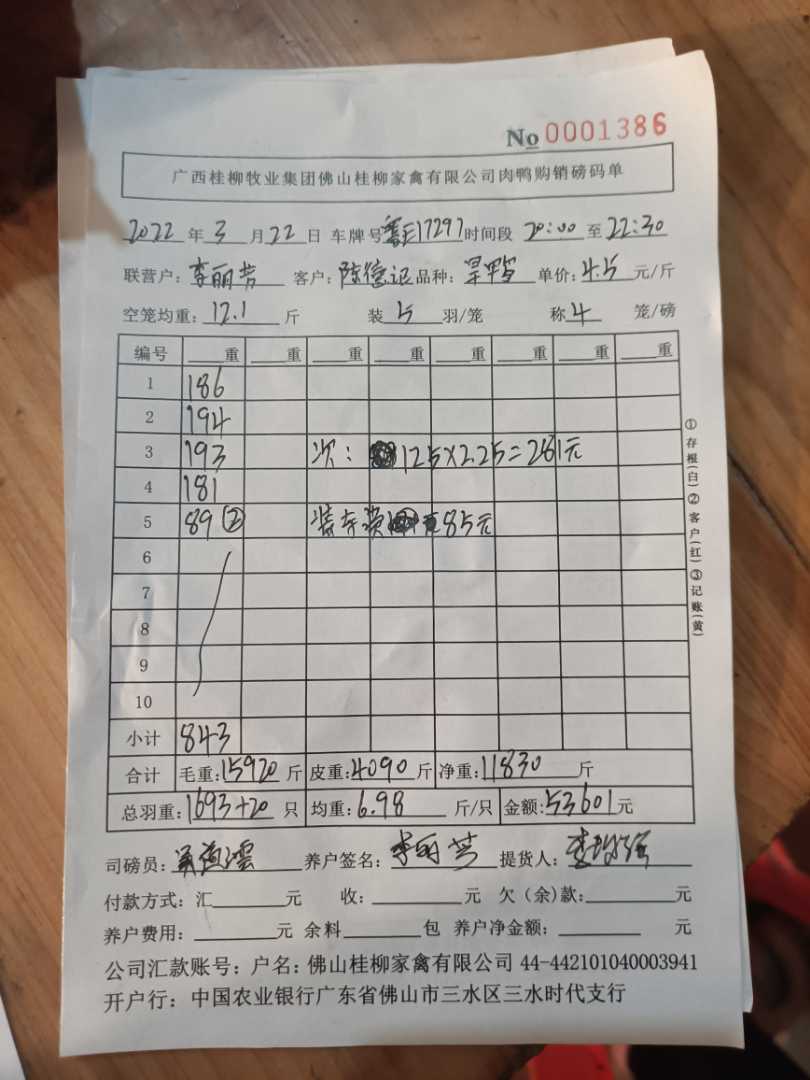 No 0001386
广西桂柳牧业集团佛山桂柳家禽有限公司肉鸭购销磅码单
2022 年 3 月 22 日 车牌号 17297 时间段 20:00 至 22:30
联营户: 李丽芳 客户: 陈德记 品种: 单价: 4.5 元/斤
空笼均重: 12.1 斤 装 5 羽/笼 称 4 笼/磅
编号 重 重 重 重 重 重 重 重
1 186
2 194
3 193 次: 125×2.25=281元
4 181
5 89 ② 装车费 85元
6
7
8
9
10
小计 843
合计 毛重: 15920 斤 皮重: 4090 斤 净重: 11830 斤
总羽重: 1693+20 只 均重: 6.98 斤/只 金额: 53601 元
司磅员: 养户签名: 李丽芳 提货人:
付款方式: 汇 元 收: 元 欠(余)款: 元
养户费用: 元 余料 包 养户净金额: 元
公司汇款账号: 户名: 佛山桂柳家禽有限公司 44-442101040003941
开户行: 中国农业银行广东省佛山市三水区三水时代支行
①存根(白)②客户(红)③记账(黄)